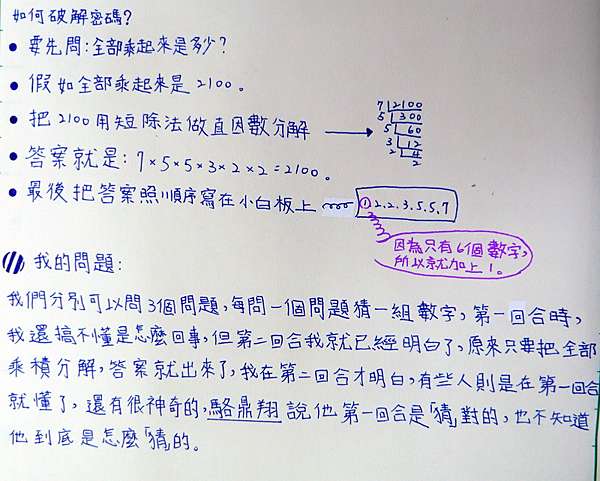 如何破解密碼?
● 要先問:全部乘起來是多少?
● 假如全部乘起來是 2100。
● 把2100用短除法做直因數分解 →
7 2100
5 300
5 60
3 12
2 4
2
● 答案就是: 7×5×5×3×2×2=2100。
● 最後把答案照順序寫在小白板上 ①2.2.3.5.5.7
因為只有6個數字,
所以就加上1。
我的問題:
我們分別可以問3個問題,每問一個問題猜一組數字,第一回合時,
我還搞不懂是怎麼回事,但第二回合我就已經明白了,原來只要把全部
乘積分解,答案就出來了,我在第二回合才明白,有些人則是在第一回合
就懂了,還有很神奇的,駱鼎翔說他第一回合是「猜」對的,也不知道
他到底是怎麼「猜」的。